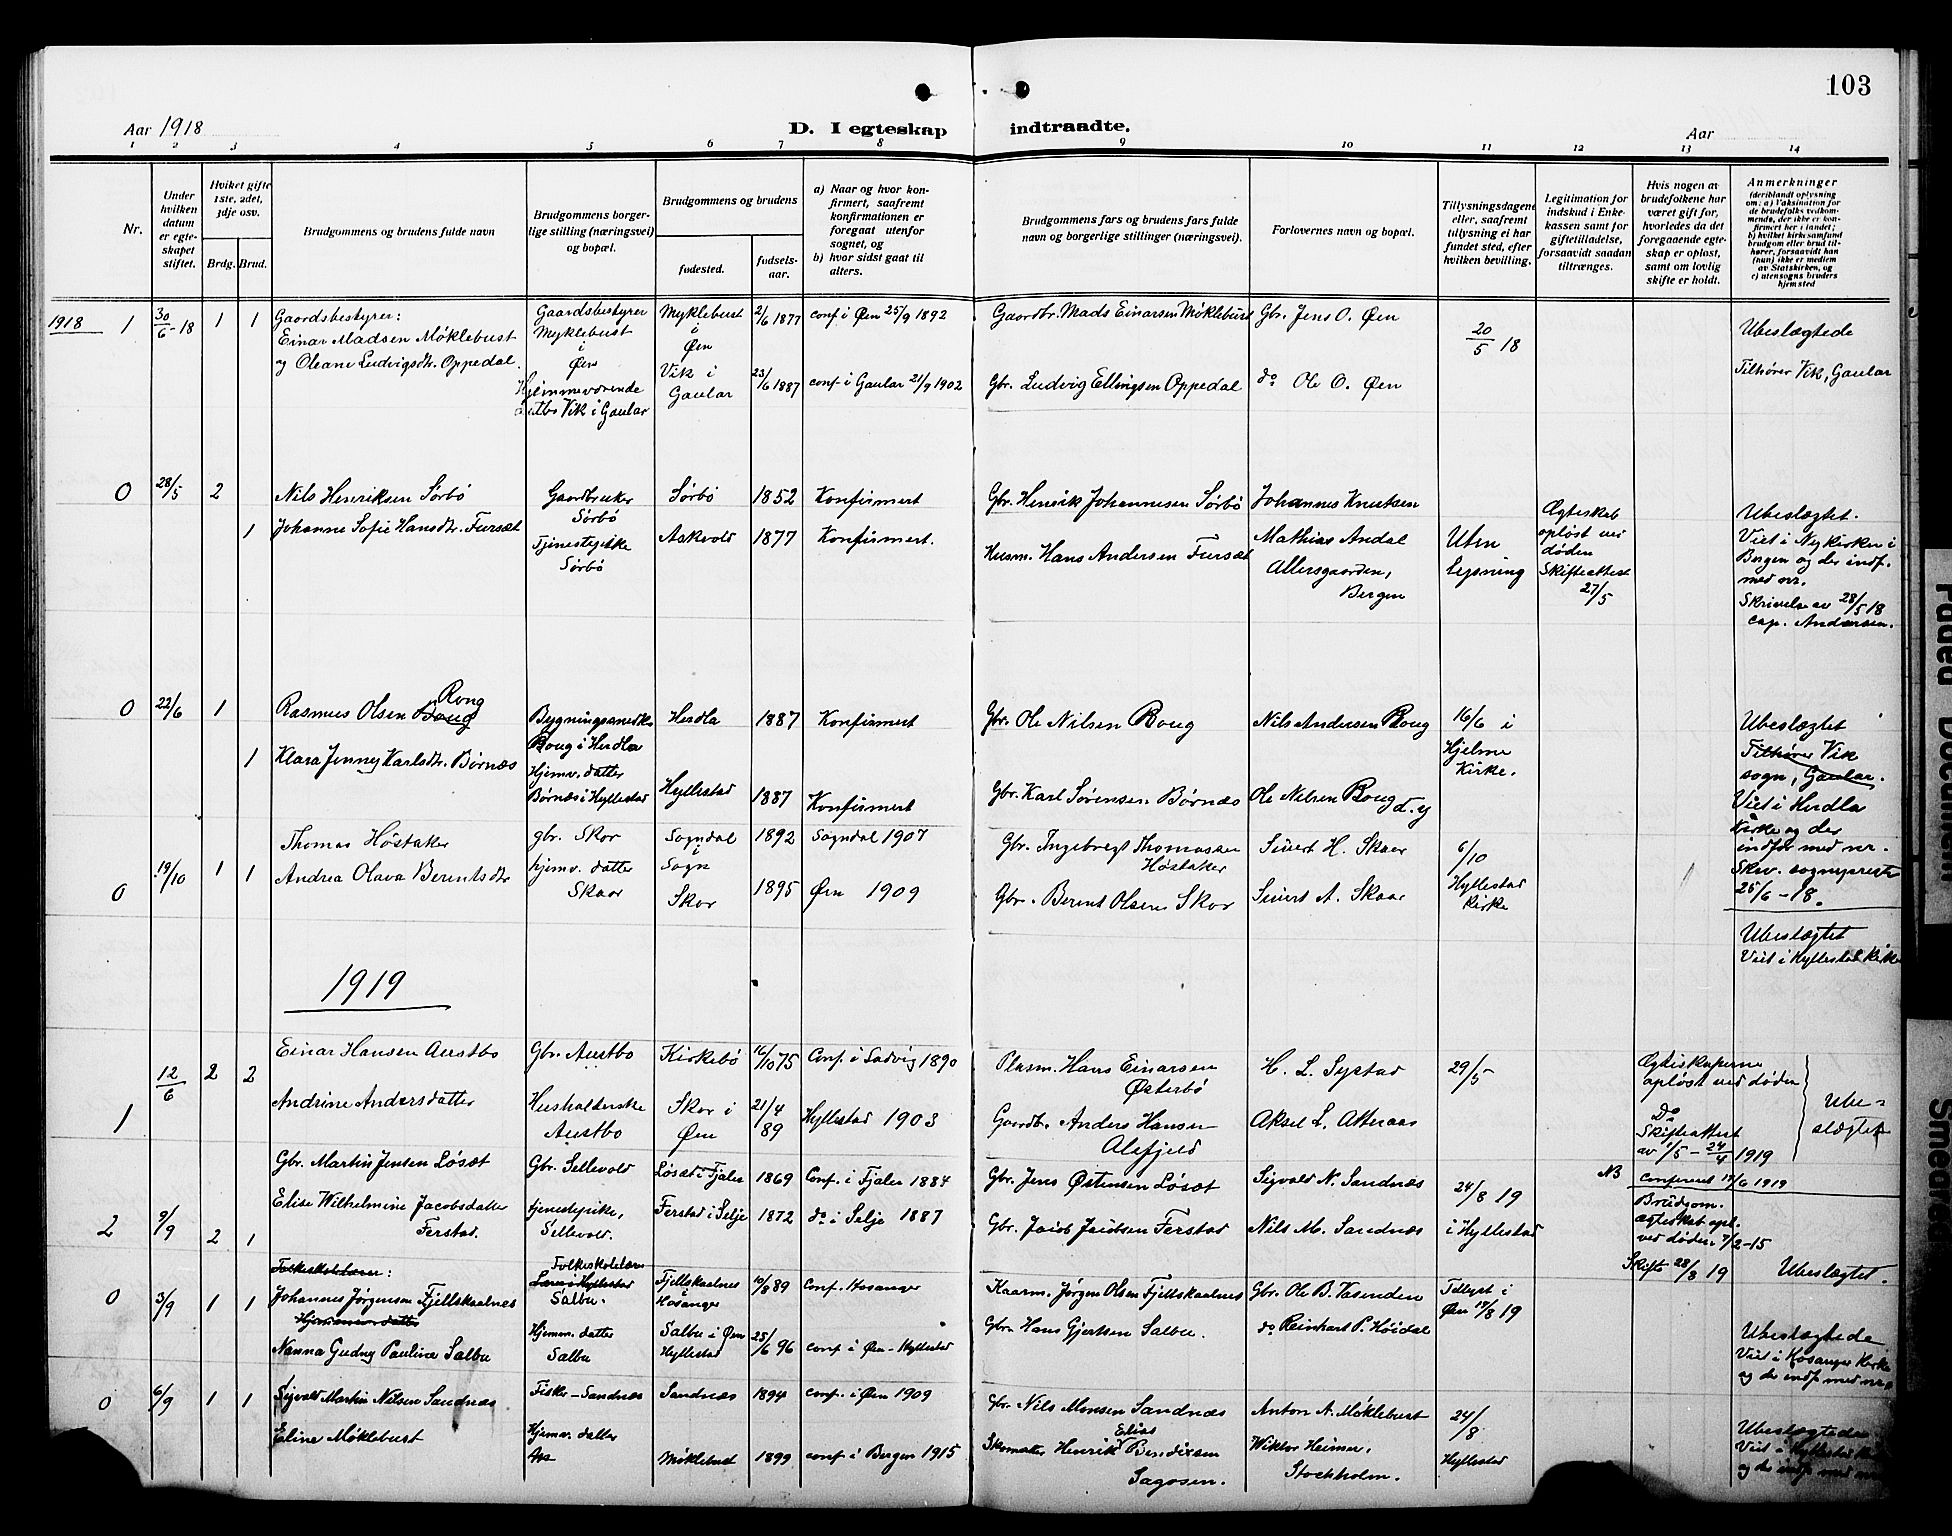 103
Aar 1918
D. I egteskap indtraadte.
Aar
1 2 3 4 5 6 7 8 9 10 11 12 13 14
Nr.
Under hvilken datum er egteskapet stiftet.
Hviket gifte 1ste, 2det, 3dje osv.
Brdg. Brud.
Brudgommens og brudens fulde navn
Brudgommens borgerlige stilling (næringsvei) og bopæl.
Brudgommens og brudens
fødested.
fødselsaar.
a) Naar og hvor konfirmert, saafremt konfirmationen er foregaat utenfor sognet, og
b) hvor sidst gaat til alters.
Brudgommens fars og brudens fars fulde navn og borgerlige stillinger (næringsvei).
Forlovernes navn og bopæl.
Tillysningsdagene eller, saafremt tillysning ei har fundet sted, efter hvilken bevilling.
Legitimation for indskud i Enkekassen samt for giftetilladelse, forsaavidt saadan tiltrænges.
Hvis nogen av brudefolkene har været gift før, hvorledes da det foregaaende egteskap er opløst, samt om lovlig skifte er holdt.
Anmerkninger (deriblandt oplysning om: a) Vaksination for de brudefolks vedkommende, der ikke er konfirmert her i landet; b) hvilket kirkesamfund brudgom eller brud tilhører, forsaavidt han (hun) ikke er medlem av Statskirken, og c) utensogns bruders hjemsted
1918 1 30/6-18 1 1 Gaardsbestyrer:
Einar Madsen Møklebust
og Oleane Ludvigsdtr. Oppedal.
Gaardsbestyrer
Myklebust
i
Øen
Hjemmeværende
Vik i Gaular
Myklebust
i
Øen
Vik i
Gaular
2/6 1877
23/6 1887
conf i Øen 25/9 1892
conf i Gaular 21/9 1902
Gaardbr. Mads Einarsen Møklebust
Gbr. Ludvig Ellingsen Oppedal
Gbr. Jens O. Øen
do Ole O. Øen
20/5 18
Ubeslægtede
Tilhører Vik, Gaular
0 28/5 2 Nils Henriksen Sørbø
1 Johanne Sofie Hansdtr. Fursæt
Gaardbruker
Sørbø
Tjenestepike
Sørbø
Sørbø
Askvold
1852
1877
Konfirmert
Konfirmert.
Gbr. Henrik Johannesen Sørbø
Husm. Hans Andersen Fursæt
Johannes Knutsen
Mathias Andal
Allersgaarden,
Bergen
Uten
lysning
Ægteskab
opløst ved
døden
Skifteattest
27/5
Ubeslægtet.
Viet i Nykirken i
Bergen og der indf.
med nr.
Skrivelse av 28/5 18
cap. Andersen.
0 22/6 1 Rasmus Olsen Rong
1 Klara Jenny Karlsdtr. Børnæs
Bygningssnedker
Rong i Herdla
Hjemv. datter
Børnæs i Hyllestad
Herdla
Hyllestad
1887
1887
Konfirmert
Konfirmert
Gbr. Ole Nilsen Rong
Gbr. Karl Sørensen Børnæs
Nils Andersen Rong
Ole Nilsen Rong d. y
16/6 i
Hjelme
Kirke.
Ubeslægtet
Tilhører Vik
sogn, Gaular.
Viet i Herdla
Kirke og der
indfør med nr.
Skr. sogneprest
25/6-18.
0 19/10 1 1 Thomas Høstaker
Andrea Olava Berentsdtr
gbr. Skor
hjemv. datter
Skaar
Sogndal
i
Sogn
Skor
1892
1895
Sogndal 1907
Øen 1909
Gbr. Ingebregt Thomassen
Høstaker
Gbr. Berent Olsen Skor
Sivert H. Skaar
Sivert A. Skaar
6/10
Hyllestad
Kirke
Ubeslægtet
Viet i Hyllestad Kirke
1919
1 12/6 2 2 Einar Hansen Austbø
Andrine Andersdatter
Gbr. Austbo
Husholderske
Austbo
Kirkebø
Skor i
Øen
16/10 75
21/4 89
Conf. i Ladvig 1890
Hyllestad 1903
Plasm. Hans Einarsen
Østerbø
Gaardb. Anders Hansen
Alefjeld
H. L. Systad
Aksel L. Atteraas
29/5
Ægteskaperne
opløst ved døden
Do
Skifteattest
av 1/5 - 24/4 1919
Ube-
slægtet
2 9/9 2 1 Gbr. Martin Jensen Løsæt
Elise Wilhelmine Jacobsdatter
Ferstad.
Gbr. Sellevold
tjenestepike,
Sellevold.
Løsæt i Fjaler
Ferstad i Selje
1869
1872
Conf. i Fjaler 1884
do i Selje 1887
Gbr. Jens Østensen Løsæt
Gbr. Jacob Jacobsen Ferstad
Sigvald N. Sandnæs
Nils M. Sandnæs
24/8 19
i Hyllestad
NB
1919
Brudgom.
ægteskab opl.
ved døden 7/2-15
Skifte 28/8 19
Ubeslægtet.
0 3/9 1 1 Folkeskolelærer:
Johannes Jørgensen Fjellskaalnes
Hjemmev. datter
Nanna Gudny Pauline Salbu
Folkeskolelærer
Lærer i Hyllestad
Salbu.
Hjemv. datter
Salbu
Fjellskaalnes
i
Hosanger
Salbu i Øen
Hyllestad
10/8 89
25/6 96
conf. Hosanger
conf i Øen-Hyllestad
Kaarm. Jørgen Olsen Fjellskaalnes
Gbr. Hans Gjertsen Salbu.
Gbr. Ole B. Vasenden
do Reinhart P. Høidal
Tillyst i
Øen 17/8 19
Ubeslægtede
Viet i Hosanger Kirke
og der indf med nr.
0 6/9 1 1 Sigvald Martin Nilsen Sandnæs
Eline Møklebust
Fisker - Sandnæs
Hjemv. datter
Sandnæs
Møklebust
1894
1899
conf. i Øen 1909
conf i Bergen 1915
Gbr. Nils Monsen Sandnæs
Skomaker Henrik Elias Bendixsen
Sagosen.
Anton A. Møklebust
Wiktor Heimer,
Stockholm.
24/8
Hyllestad
Ubeslægtede
Viet i Hyllestad
og der indf med nr
Faded Document
Smeared